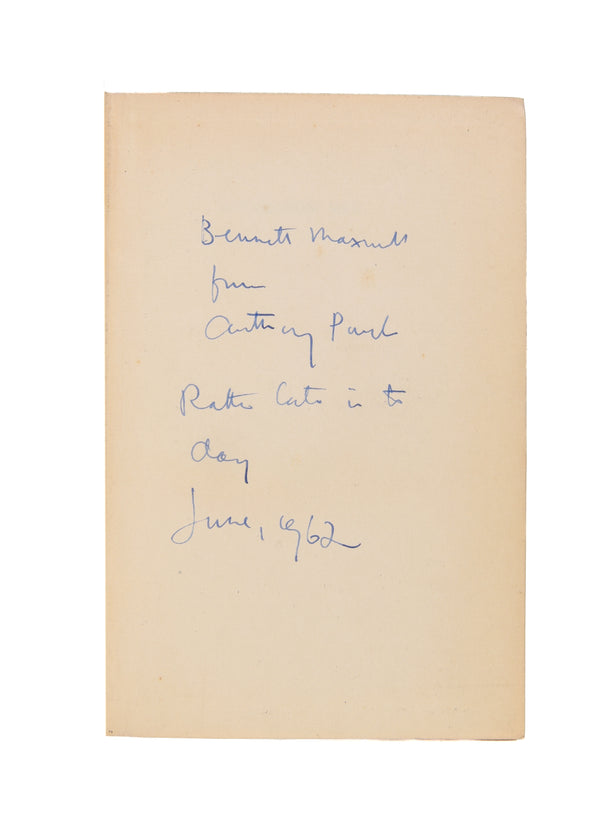 Bennett Maxwell
from
Anthony Powell
Rather late in the
day
June, 1962